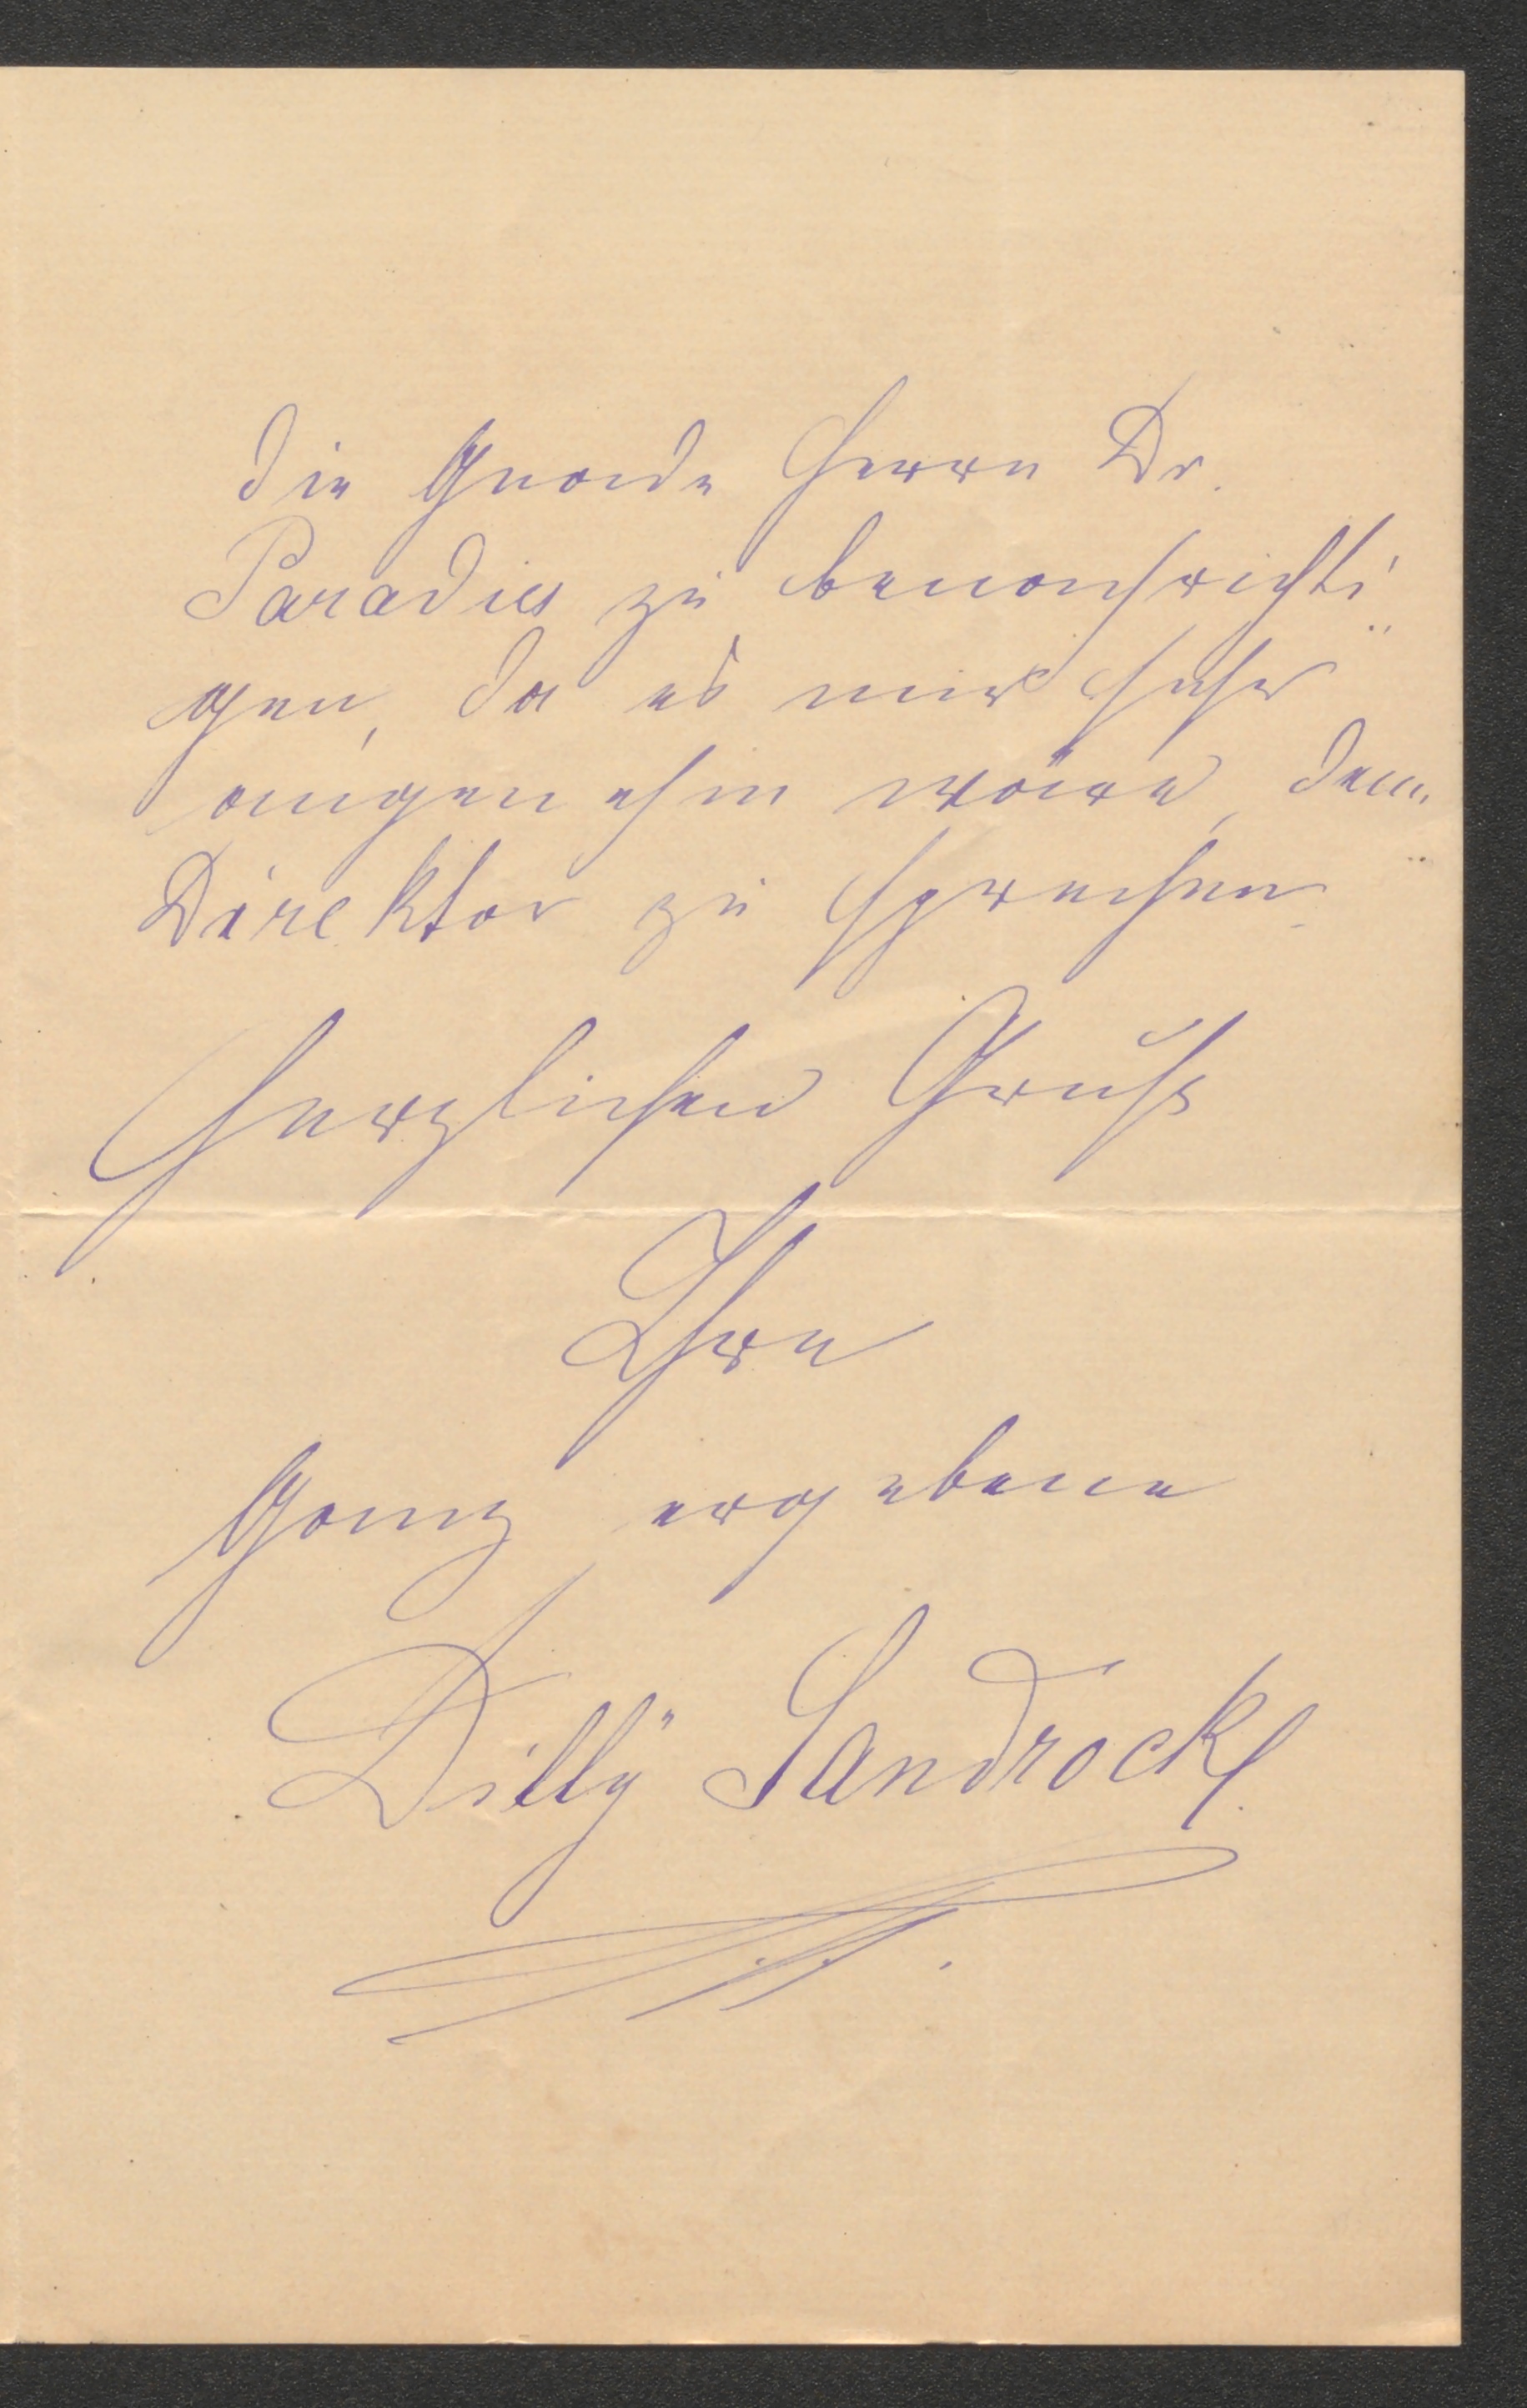 die Gnade Herrn Dr.
Paradies zu benachrichti
gen, da es mir sehr
angenehm wäre, den
Direktor zu sprechen.
Herzlichen Gruß
Ihre
Ganz ergebene
Dilly Sandrock